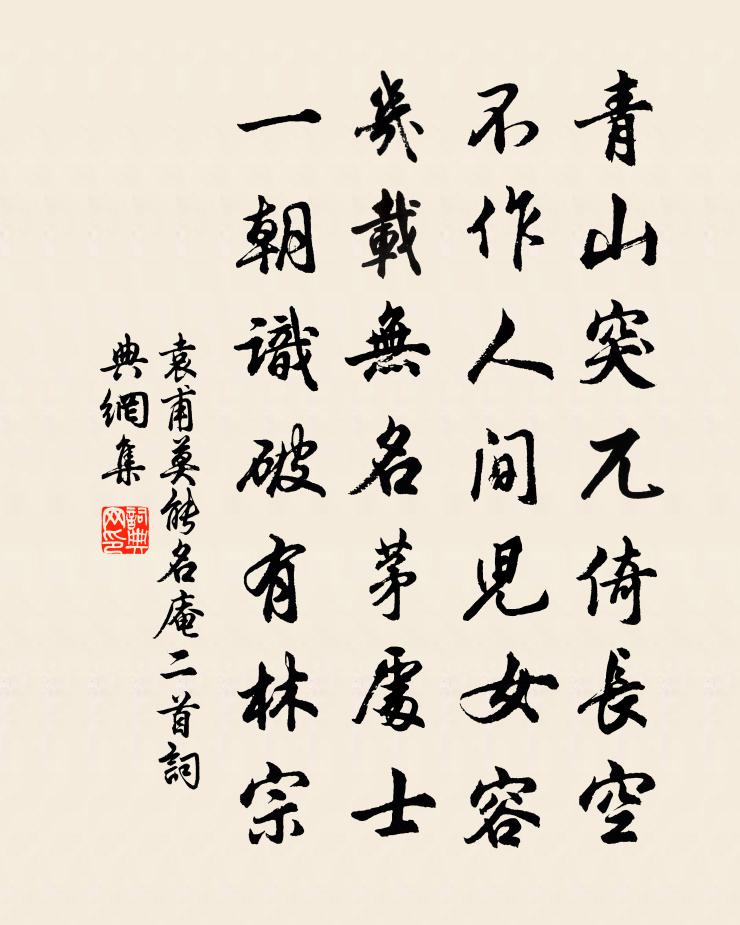 青山突兀倚長空
不作人間児女容
幾載無名茅處士
一朝識破有林宗
袁甫莫能名庵二首詞
典網集
詞典网印